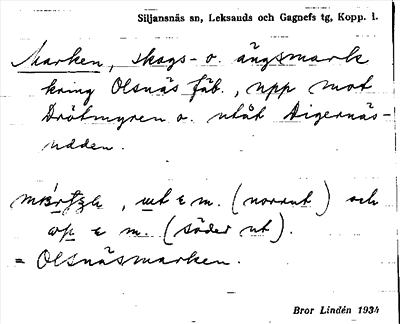 Siljansnäs sn, Leksands och Gagnefs tg, Kopp. l.
Marken, skogs- o. ängsmark
kring Olsnäs fäb., upp mot
Drötmyren o. utåt Digernäs-
udden.
, ut e m. (norrut) och
e m. (söder ut).
= Olsnäsmarken.
Bror Lindén 1934